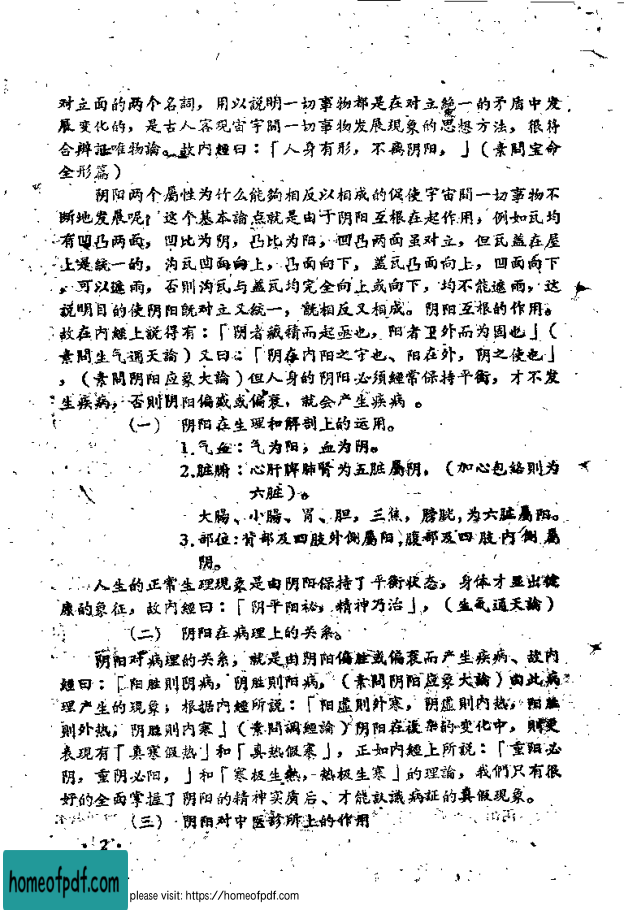 对立面的两个名詞，用以説明一切事物都是在对立統一的矛盾中发
展变化的，是古人客观宙宇間一切事物发展现象的思想方法，很符
合辨証唯物論。故内經曰：「人身有形，不离阴阳，」（素問宝命
全形篇）
阴阳两个屬性为什么能夠相反以相成的促使宇宙間一切事物不
断地发展呢？这个基本論点就是由于阴阳互根在起作用，例如瓦均
有凹凸两面，凹比为阴，凸比为阳，凹凸两面虽对立，但瓦盖在屋
上是統一的，沟瓦凹面向上，凸面向下，盖瓦凸面向上，凹面向下
，可以遮雨，否則沟瓦与盖瓦均完全向上或向下，均不能遮雨，这
説明目的使阴阳既对立又統一，旣相反又相成。阴阳互根的作用。
故在内經上說得有：「阴者藏精而起亟也，阳者卫外而为固也」（
素問生气通天論）又曰：「阴在内阳之守也、阳在外，阴之使也」
，（素問阴阳应象大論）但人身的阴阳必須經常保持平衡，才不发
生疾病，否則阴阳偏盛或偏衰，就会产生疾病。
（一） 阴阳在生理和解剖上的运用。
1.气血：气为阳，血为阴。
2.脏腑：心肝脾肺腎为五脏屬阴，（加心包絡則为
六脏）。
大腸、小腸、胃、胆，三焦，膀胱，为六脏屬阳。
3.部位：背部及四肢外側屬阳，腹部及四肢内側屬
阴。
人生的正常生理现象是由阴阳保持了平衡状态，身体才显出健
康的象征，故内經曰：「阴平阳祕，精神乃治」，（生氣通天論）
（二） 阴阳在病理上的关系。
阴阳对病理的关系，就是由阴阳偏胜或偏衰而产生疾病、故内
經曰：「阳胜則阴病，阴胜則阳病，（素問阴阳应象大論）由此病
理产生的现象，根据内經所説：「阳虛則外寒，阴虛則内热，阳胜
則外热，阴胜則内寒」（素問調經論）阴阳在复杂的变化中，則更
表现有「真寒假热」和「真热假寒」，正如内經上所說：「重阳必
阴，重阴必阳，」和「寒极生热，热极生寒」的理論，我們只有很
好的全面掌握了阴阳的精神实质后、才能认識病証的真假现象。
（三） 阴阳对中医診所上的作用
·2·
homeofpdf.com
please visit: https://homeofpdf.com